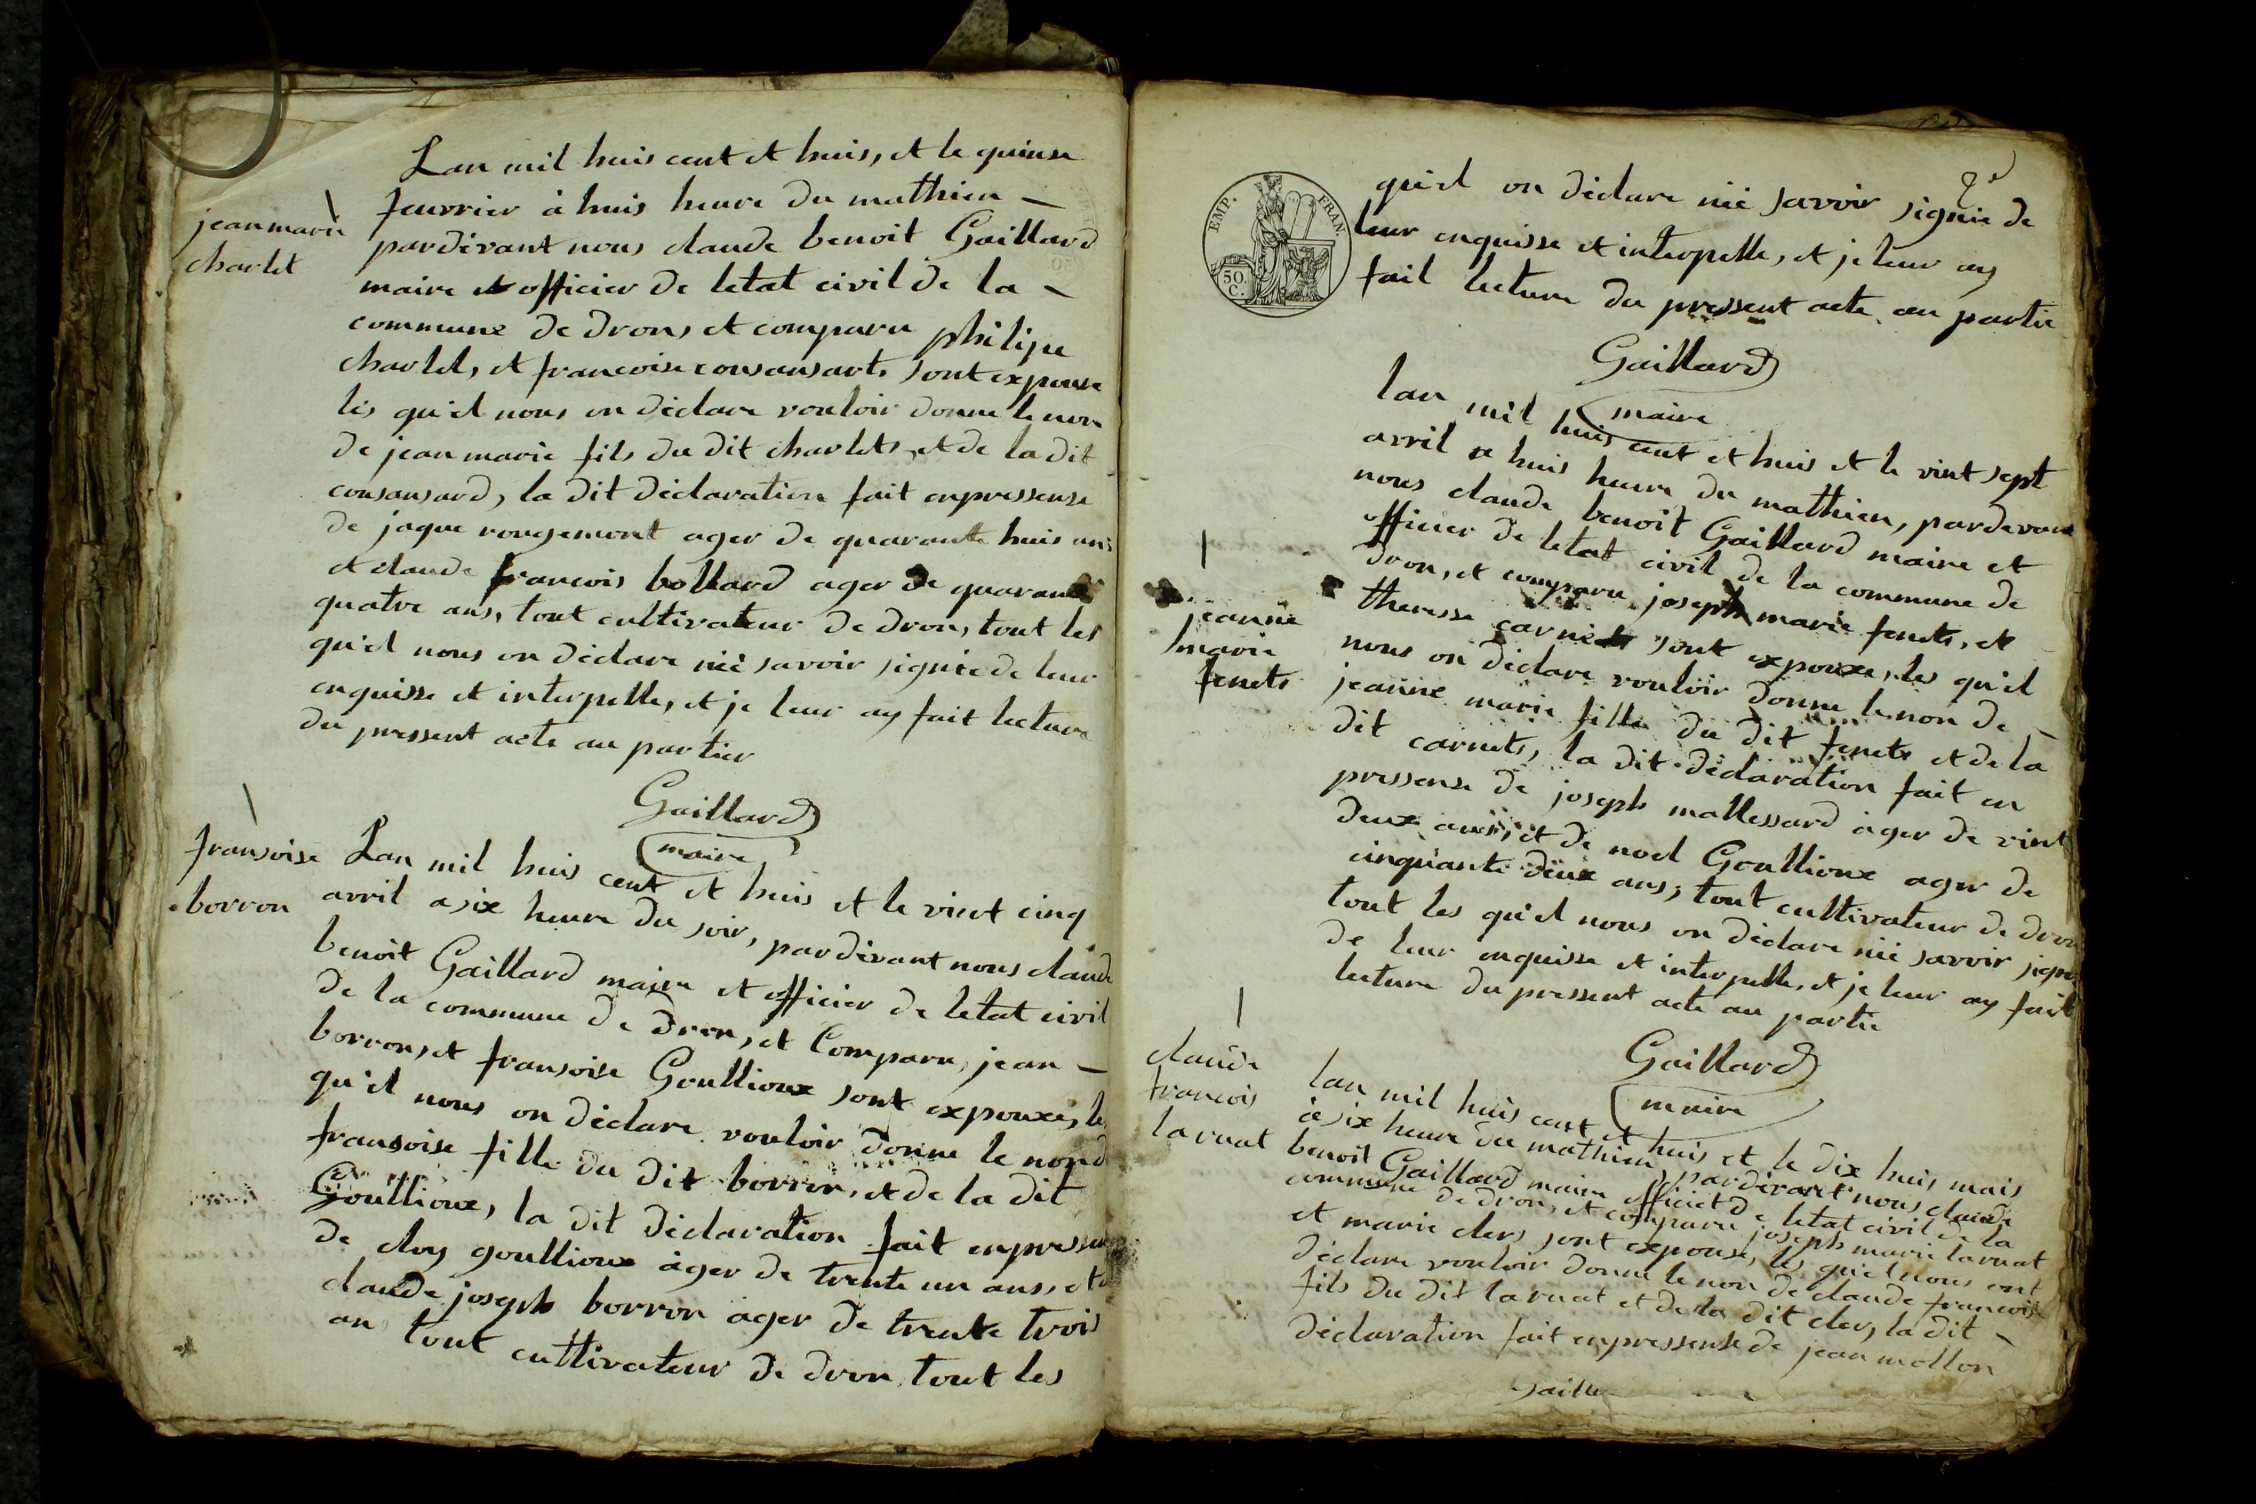 Lan mil huis cent et huis, et le quinse
feuvrier à huis heure du mathien
jean marie
charlet
pardevant nous claude benoit Gaillard
maire et officier de letat civil de la
commune de drons et comparu philipe
charlet, et francoise consansart, sont expouse
les qu'el nous on déclare vouloir donne le non
de jean marie fils du dit charlets, et de la dit
consansard, la dit déclaration fait enpressense
de jaque rougemont ager de quarante huis ans
et claude francois bollard ager de quarante
quatre ans, tout cultivateur de dron, tout les
qu'el nous on déclare nié savoir signie de leur
enquisse et interpelle, et je leur ay fait lecture
du pressent acte au partier
Gaillard
maire
fransoise
borron
Lan mil huis cent et huis et le vint cinq
avril a six heure du soir, pardevant nous claude
benoit Gaillard maire et officier de letat civil
de la commune de dron, et Comparu, jean
borron, et fransoise Goullioux sont expouxe, le
qu'el nous on déclare vouloir donne le non d
fransoise fille du dit borron, et de la dit
Goullioux, la dit déclaration fait enpressen
de cloy goullioux àger de trente un ans, et
claude joseph borron àger de trente trois
an tout cultivateur de dron, tout les
qu'el on déclare nié savoir signie de
leur enquisse et interpelle, et je leur ay
fait lecture du pressent acte au partie
EMP. FRAN.
50 C.
Gaillard
maire
jeanne
marie
fenets
lan mil huis cent et huis et le vint sept
avril a huis heure du mathien, pardevant
nous claude benoit Gaillard maire et
officier de letat civil de la commune de
dron, et comparu joseph marie fenets, et
theresse carnets sont expouxe, les qu'el
nous on déclare vouloir donne le non de
jeanne marie fille du dit fenets et de la
dit carnets, la dit déclaration fait en
pressense de joseph mallessard àger de vint
deux ans, et de noel Goullioux ager de
cinquante deux ans, tout cultivateur de dron
tout les qu'el nous on déclare nié savoir signe
de leur enquisse et interpelle, et je leur ay fait
lecture du pressent acte au partie
Gaillard
maire
claude
francois
laruat
lan mil huis cent et huis et le dix huis mais
à six heure du mathien, pardevant nous claude
benoit Gaillard maire officiet de letat civil de la
commune de dron, et comparu joseph marie laruat
et marie clers sont expouse, les qu'el nous ont
déclare vouloir donne le non de claude francois
fils du dit laruat et de la dit cler, la dit
déclaration fait enpressense de jean mollon